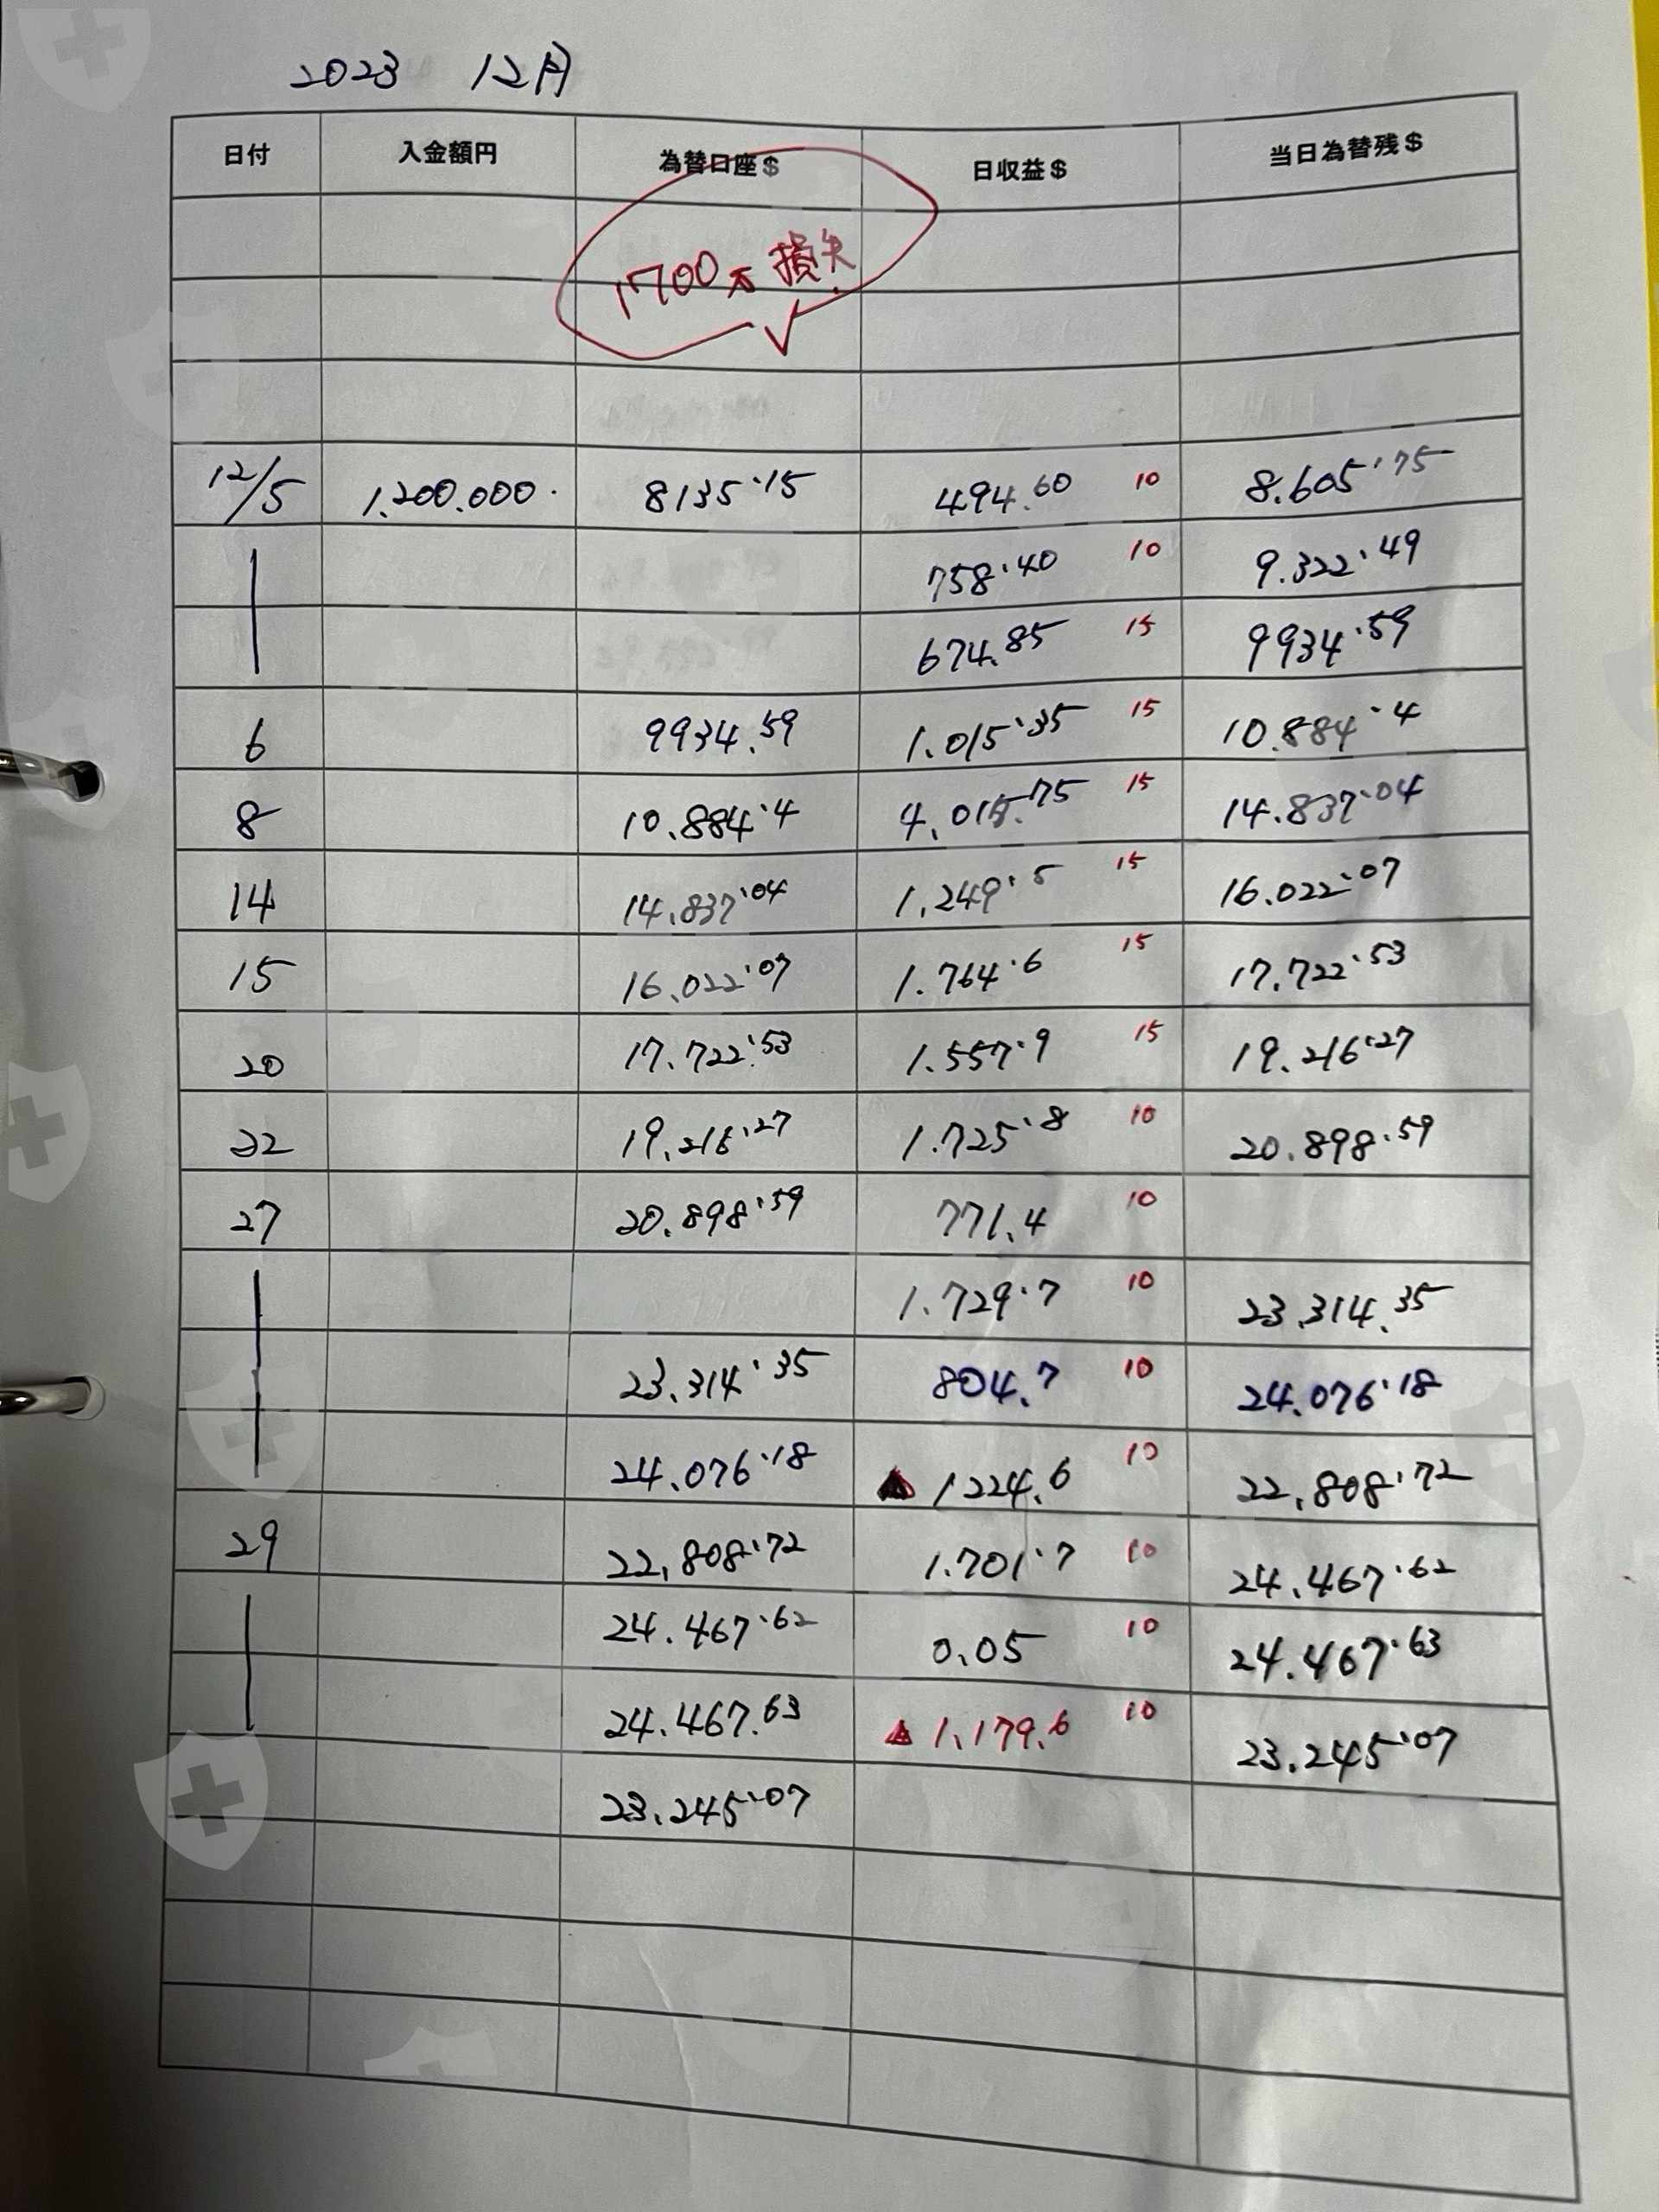 2023 12月
日付 入金額円 為替口座$ 日収益$ 当日為替残$
1700万 損失
12/5 1.200.000. 8135.15 494.60 10 8.605.75
758.40 10 9.322.49
674.85 15 9934.59
6 9934.59 1.015.35 15 10.884.4
8 10.884.4 4.015.75 15 14.837.04
14 14.837.04 1.249.5 15 16.022.07
15 16.022.07 1.764.6 15 17.722.53
20 17.722.53 1.557.9 15 19.216.27
22 19.216.27 1.725.8 10 20.898.59
27 20.898.59 771.4 10
1.729.7 10 23.314.35
23.314.35 804.7 10 24.076.18
24.076.18 ▲1224.6 10 22,808.72
29 22,808.72 1.701.7 10 24.467.62
24.467.62 0.05 10 24.467.63
24.467.63 ▲1,179.6 10 23.245.07
23.245.07